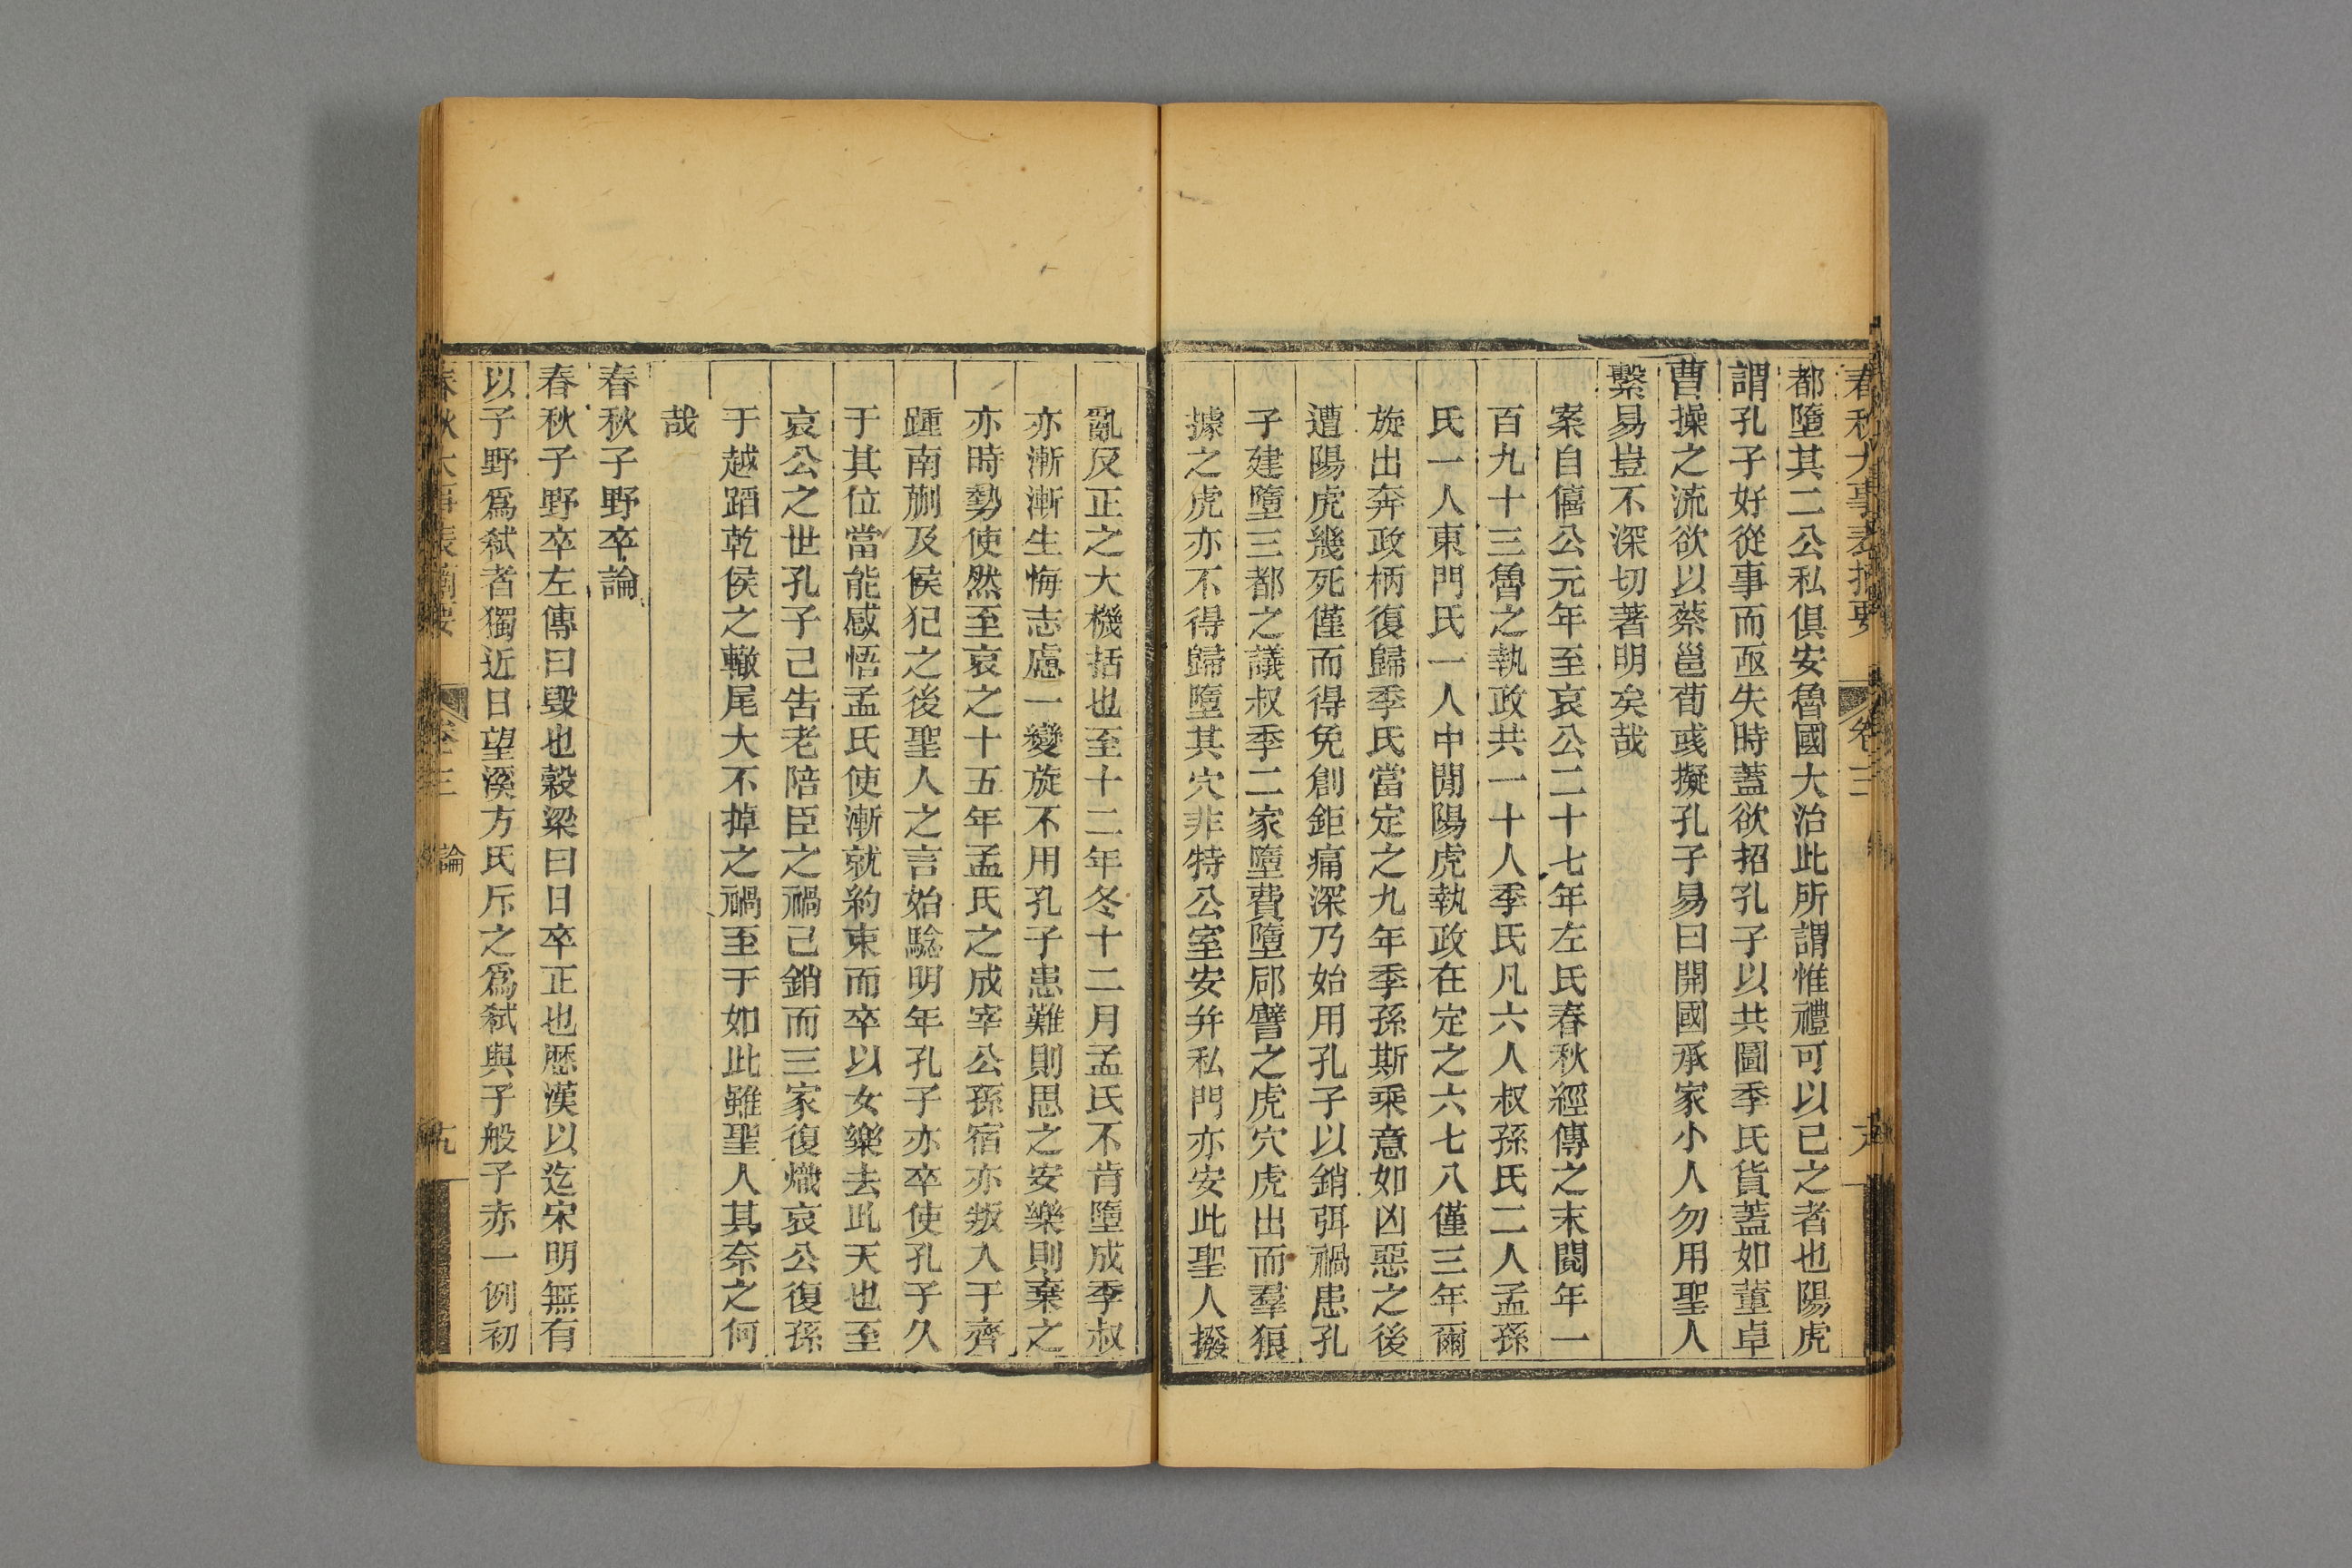 春秋大事表摘要 卷三
都墮其二公私俱安魯國大治此所謂惟禮可以已之者也陽虎
謂孔子好從事而亟失時蓋欲招孔子以共圖季氏貨蓋如董卓
曹操之流欲以蔡邕荀彧擬孔子易曰開國承家小人勿用聖人
繫易豈不深切著明矣哉
案自僖公元年至哀公二十七年左氏春秋經傳之末閱年一
百九十三魯之執政共一十人季氏凡六人叔孫氏二人孟孫
氏一人東門氏一人中閒陽虎執政在定之六七八僅三年爾
旋出奔政柄復歸季氏當定之九年季孫斯乘意如凶惡之後
遭陽虎幾死僅而得免創鉅痛深乃始用孔子以銷弭禍患孔
子建墮三都之議叔季二家墮費墮郈譬之虎穴虎出而羣狼
據之虎亦不得歸墮其穴非特公室安幷私門亦安此聖人撥
亂反正之大機括也至十二年冬十二月孟氏不肯墮成季叔
亦漸漸生悔志慮一變旋不用孔子患難則思之安樂則棄之
亦時勢使然至哀之十五年孟氏之成宰公孫宿亦叛入于齊
踵南蒯及侯犯之後聖人之言始驗明年孔子亦卒使孔子久
于其位當能感悟孟氏使漸就約束而卒以女樂去此天也至
哀公之世孔子已告老陪臣之禍已銷而三家復熾哀公復孫
于越蹈乾侯之轍尾大不掉之禍至于如此雖聖人其奈之何
哉
春秋子野卒論
春秋子野卒左傳曰毀也穀梁曰日卒正也歷漢以迄宋明無有
以子野爲弒者獨近日望溪方氏斥之爲弒與子般子赤一例初
春秋大事表摘要 卷三 論 九